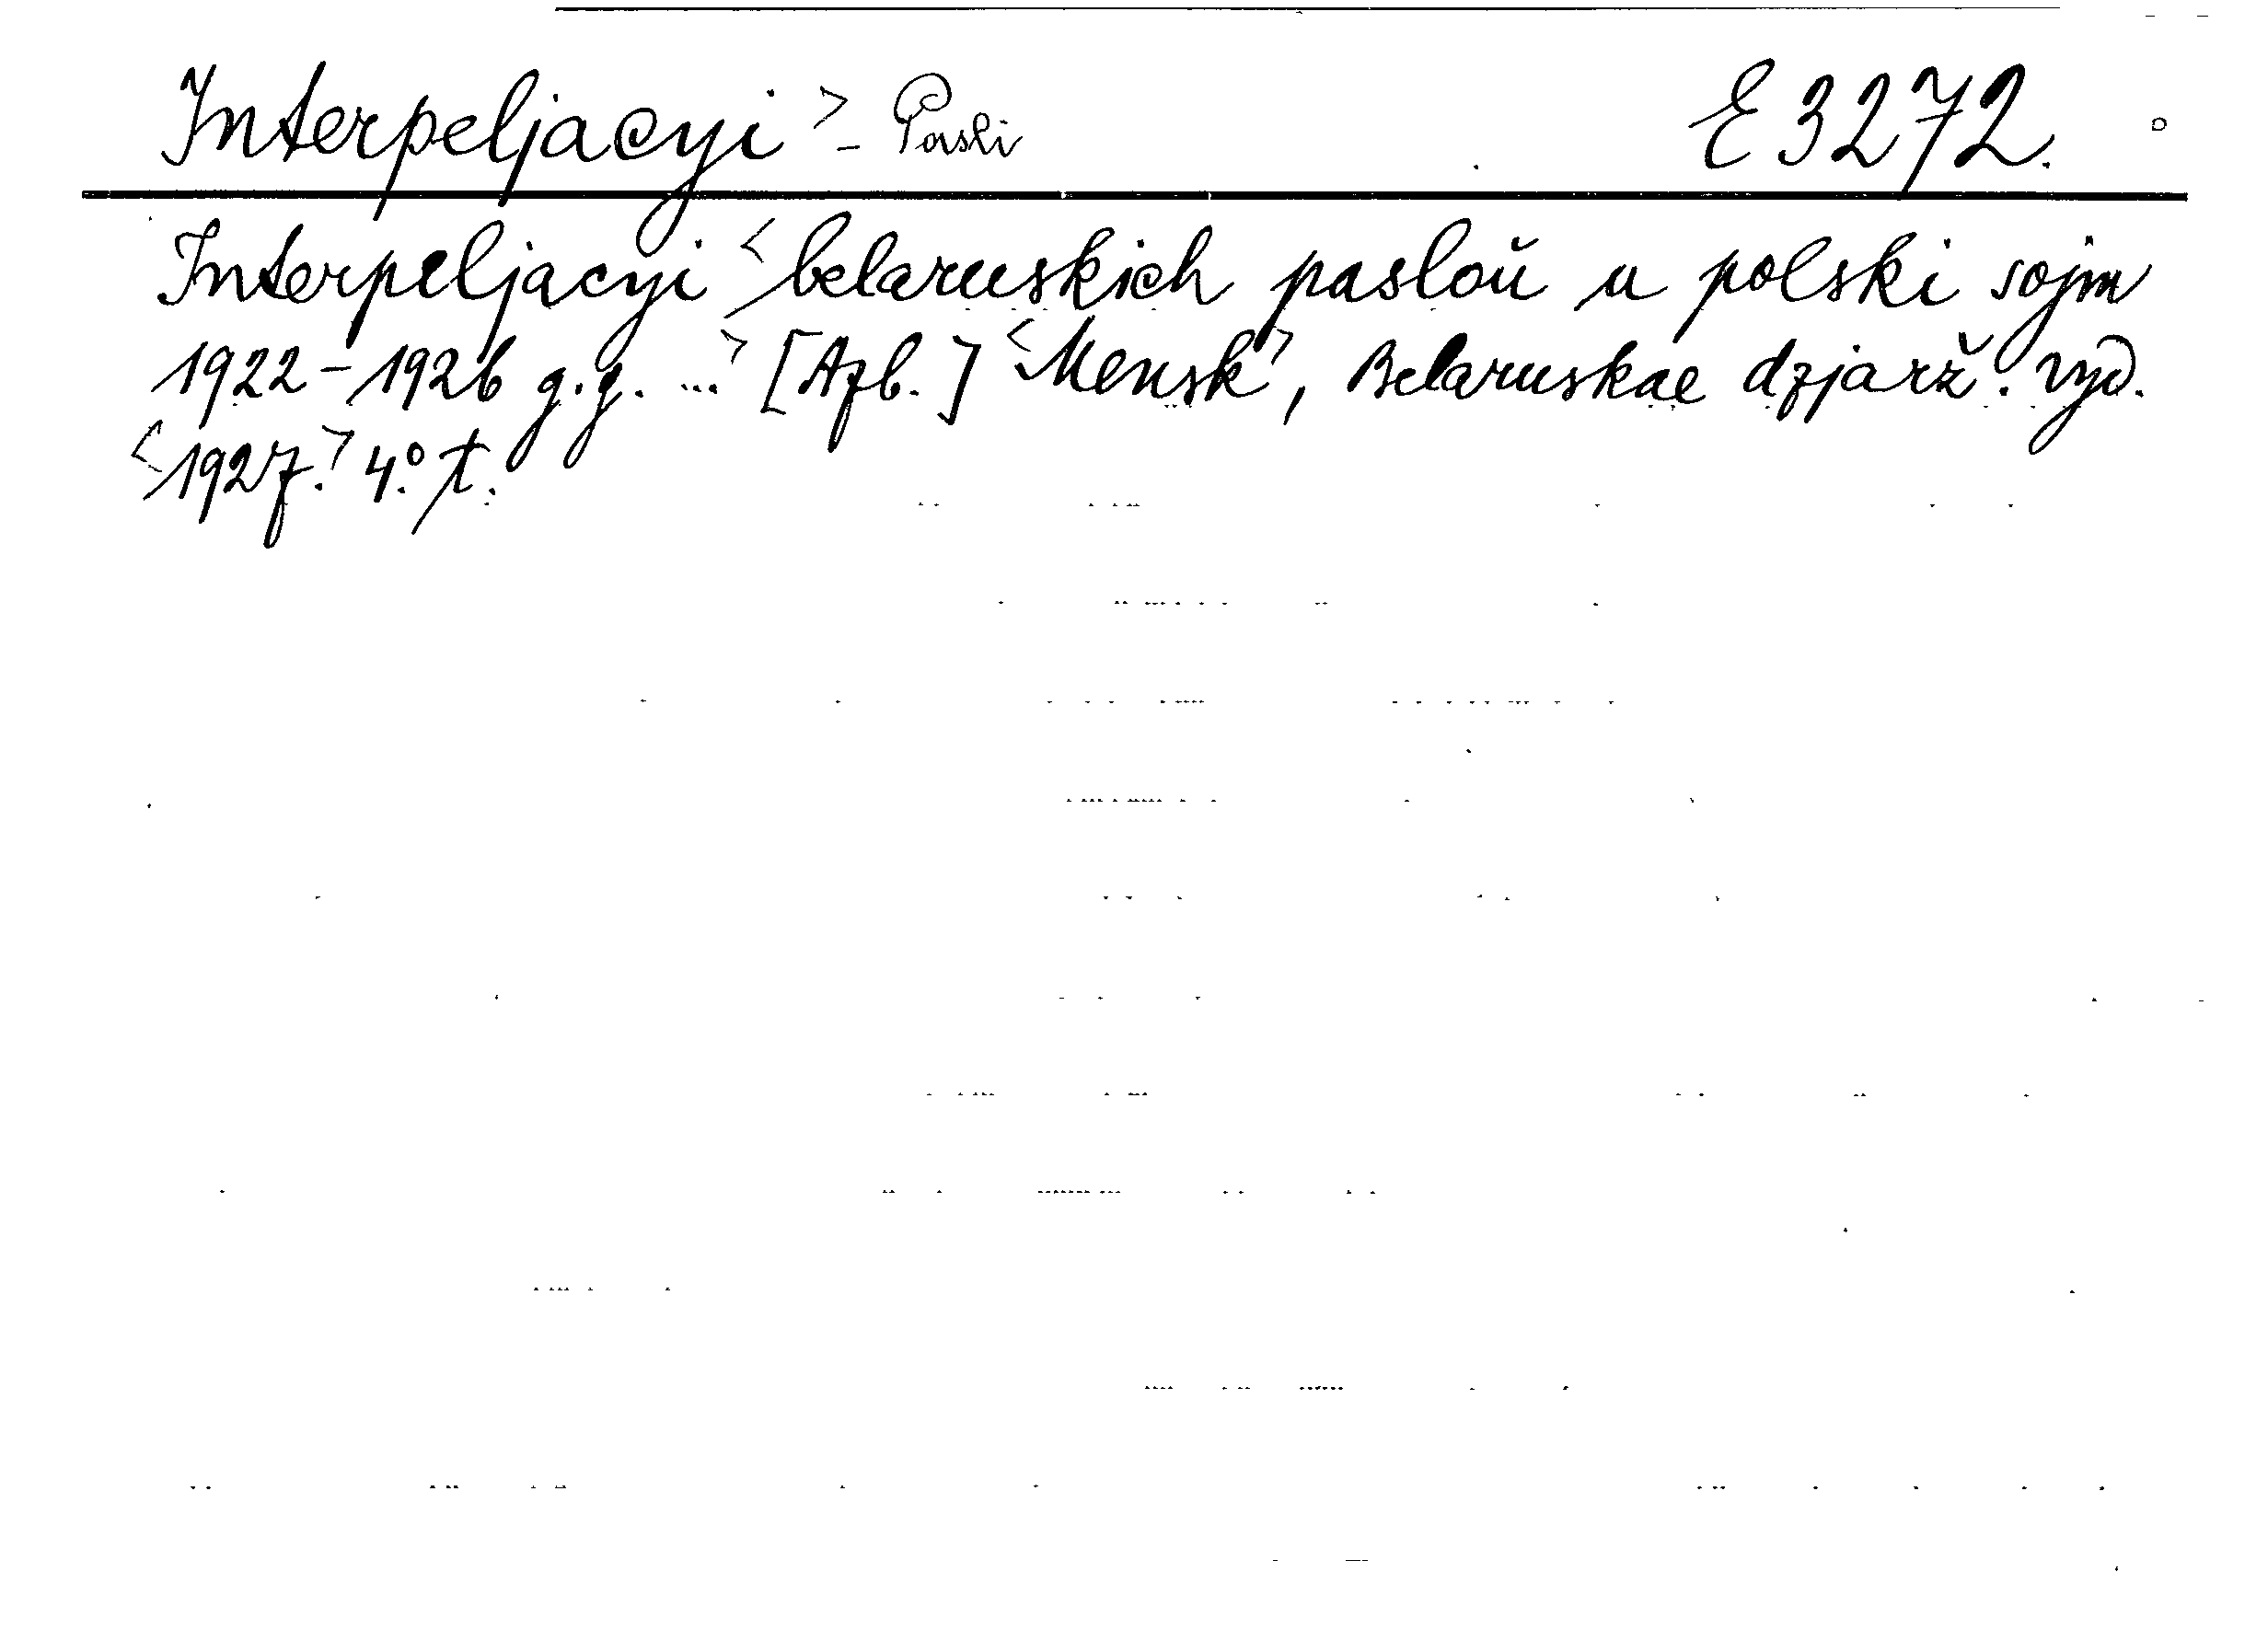 Interpeljacyi > - Pasli E 3272.
Interpeljacyi <belaruskich pasloŭ u polski sojm
1922-1926 g.g. ...> [Azb.] <Mensk>, Belaruskae dzjarž. vyd.
<1927.> 4.° t.